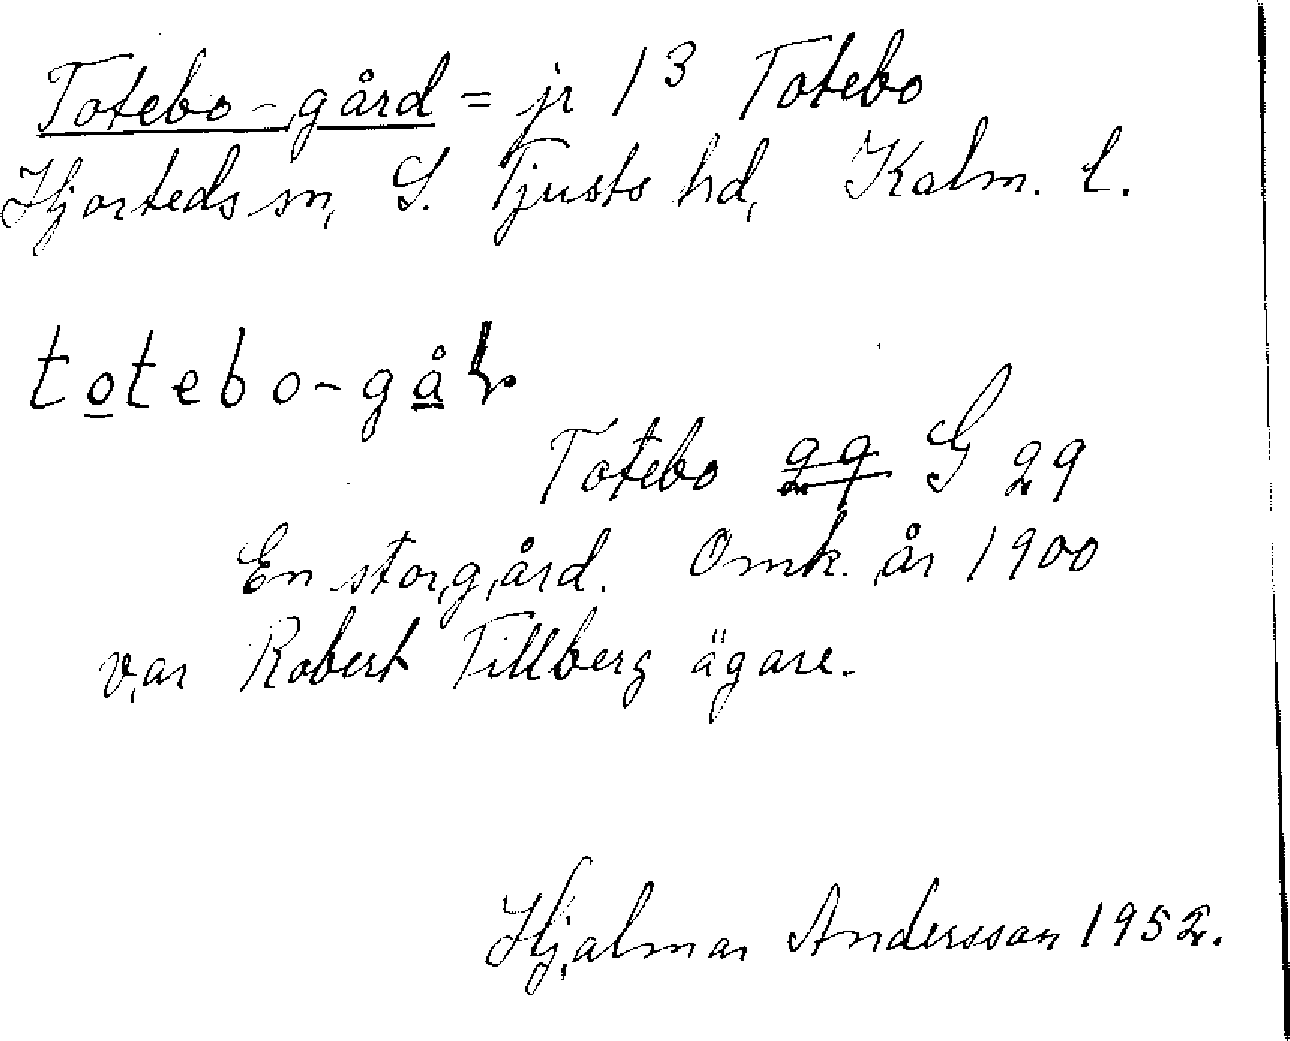 Totebo-gård = jr 1³ Totebo
Hjorteds sn, S. Tjusts hd, Kalm. l.
totebo-gå
Totebo G 29
En storgård. Omk. år 1900
var Robert Tillberg ägare.
Hjalmar Andersson 1952.